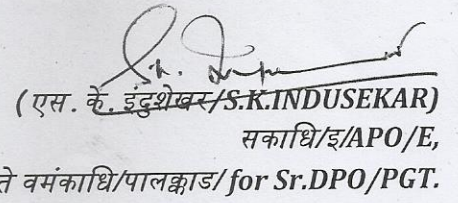 (एस. के. इंदुशेखर/S.K.INDUSEKAR)
सकाधि/इ/APO/E,
ते वमंकाधि/पालक्काड/ for Sr.DPO/PGT.